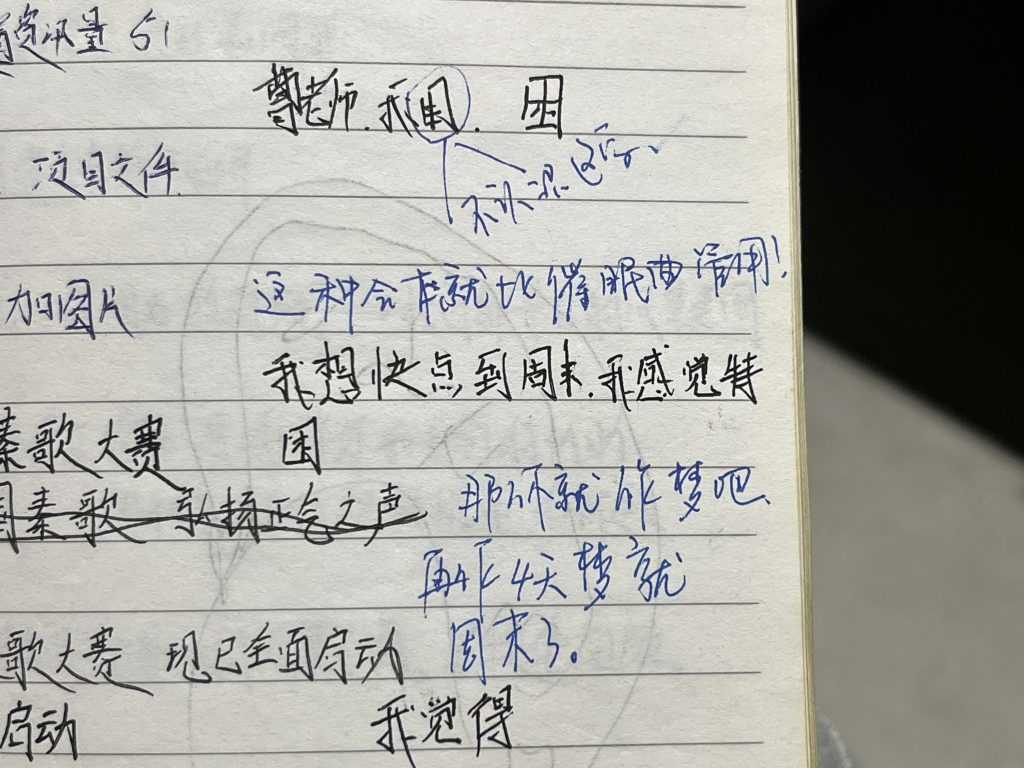 资讯量 51
尊老师.我困. 困
不认识这字.
项目文件
这种会本就比催眠曲管用!
加图片
我想快点到周末.我感觉特
秦歌大赛 困
秦歌 弘扬正气之声 那你就作梦吧.
再作4天梦就
歌大赛 现已全面启动 周末了。
启动 我觉得